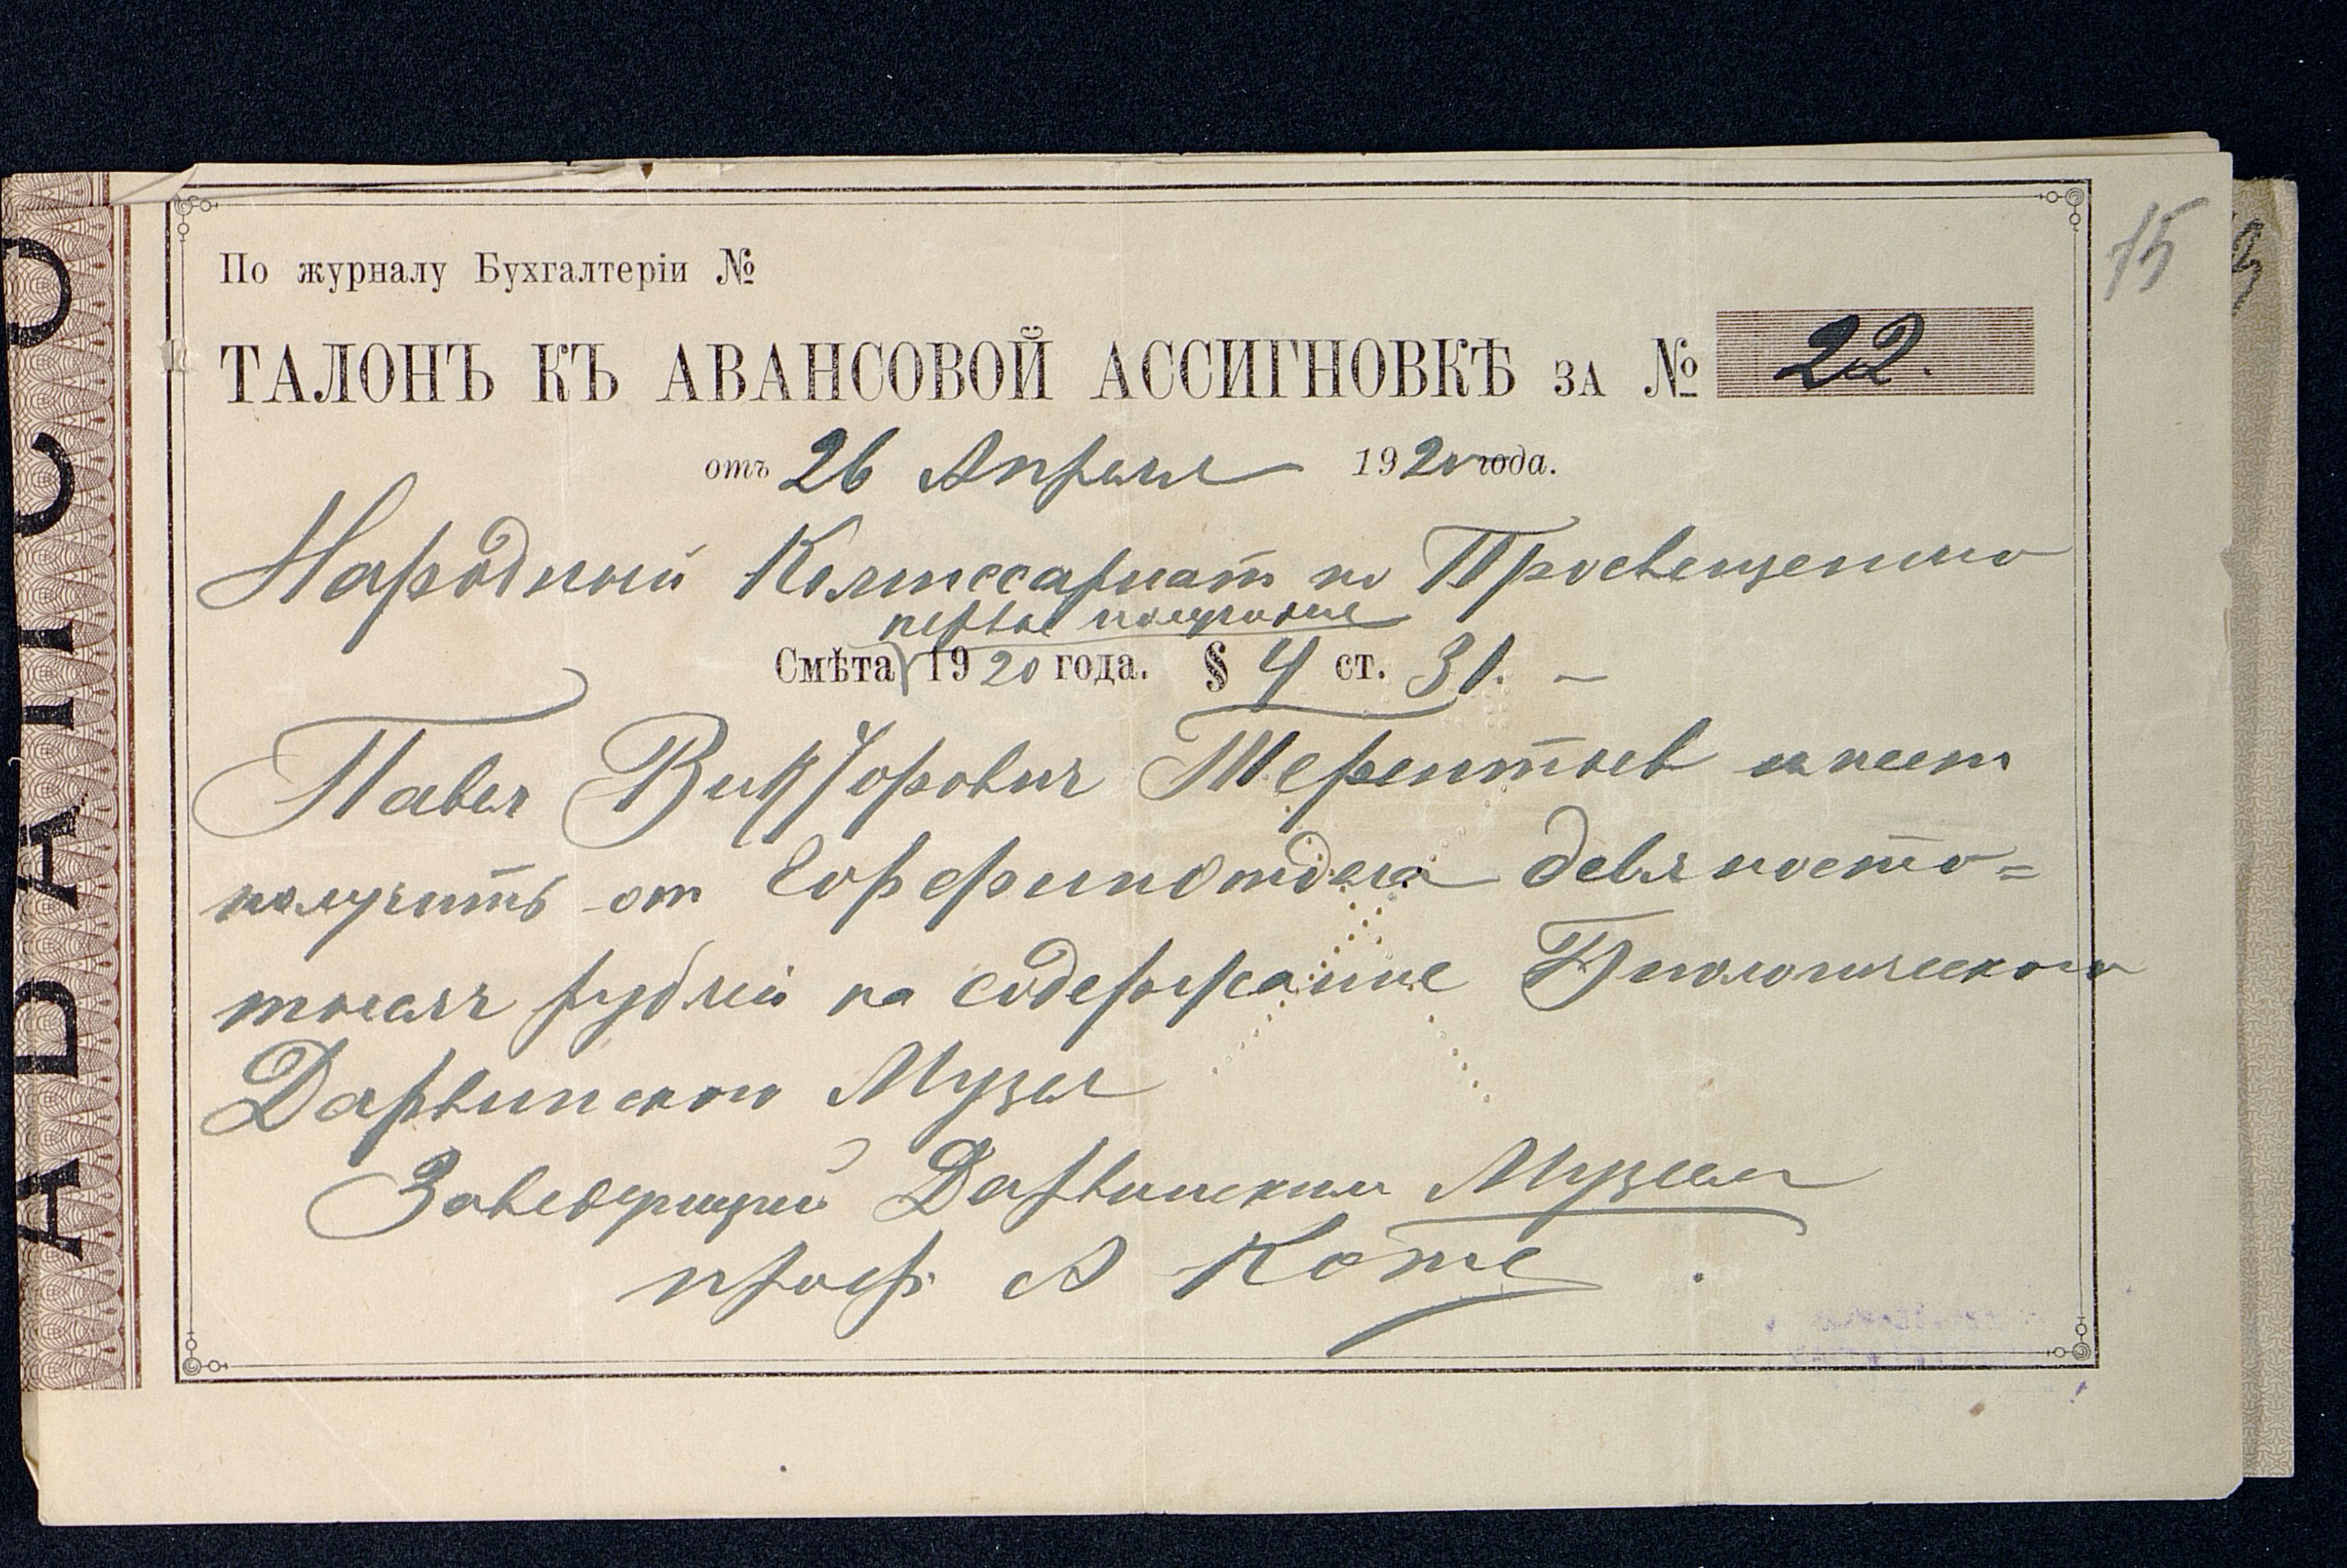 АВАНСО
15
По журналу Бухгалтеріи №
ТАЛОНЪ КЪ АВАНСОВОЙ АССИГНОВКѢ ЗА № 22.
отъ 26 Апреля 1920 года.
Народный Комиссариат по Просвещению
первое полугодие
Смѣта 1920 года. § 4 ст. 31. —
Павел Викторович Терентьев имеет
получить от Горфинотдела девяносто=
тысяч рублей на содержание Биологического
Дарвинского Музея
Заведующий Дарвинским Музеем
проф. А Котс